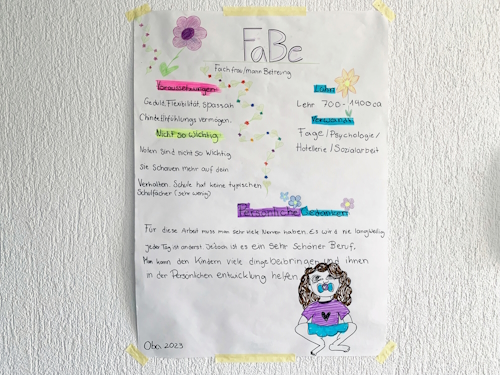 FaBe
Fachfrau/mann Betreung
Voraussetzungen
Geduld, Flexibilität, Spass ah
Chinder, Einfühlungsvermögen.
Nicht so wichtig
Noten sind nicht so wichtig
Sie Schauen mehr auf dein
Verhalten. Schule hat keine typischen
Schulfächer (sehr wenig)
Lohn
Lehr 700 - 1400 ca
Fage / Psychologie /
Hotellerie / Sozialarbeit
Persönliche Gedanken
Für diese Arbeit muss man sehr viele Nerven haben. Es wird nie langweilig
jeder Tag ist anderst. Jedoch ist es ein sehr schöner Beruf.
Man kann den Kindern viele dinge beibringen und ihnen
in der Persönlichen entwicklung helfen
Oba. 2023